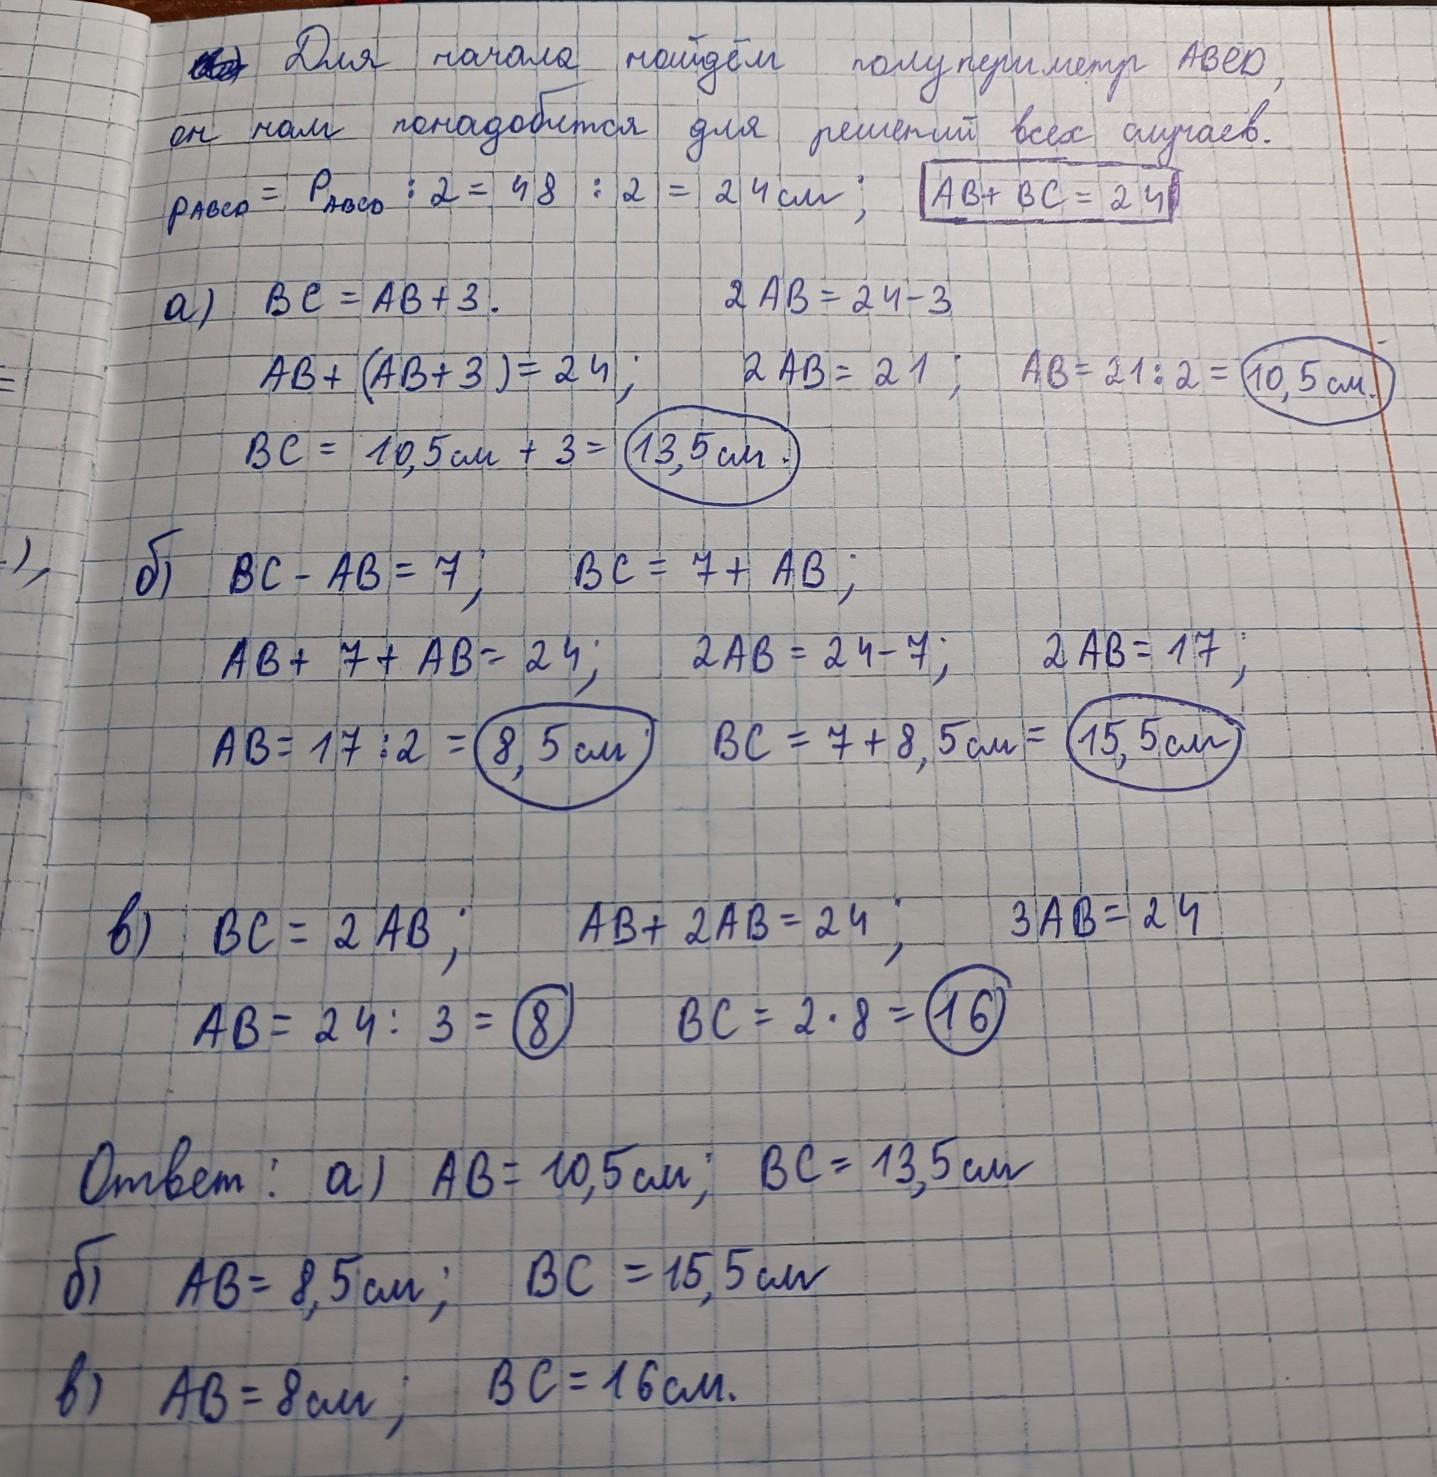 Для начала найдём полупериметр ABCD,
он нам понадобится для решений всех случаев.
pABCD = PABCD : 2 = 48 : 2 = 24см; AB + BC = 24
а) BC = AB + 3. 2AB = 24 - 3
AB + (AB + 3) = 24; 2AB = 21; AB = 21 : 2 = 10,5см.
BC = 10,5см + 3 = 13,5см.
б) BC - AB = 7; BC = 7 + AB;
AB + 7 + AB = 24; 2AB = 24 - 7; 2AB = 17;
AB = 17 : 2 = 8,5см BC = 7 + 8,5см = 15,5см
в) BC = 2AB; AB + 2AB = 24; 3AB = 24
AB = 24 : 3 = 8 BC = 2 · 8 = 16
Ответ: а) AB = 10,5см; BC = 13,5см
б) AB = 8,5см; BC = 15,5см
в) AB = 8см; BC = 16см.